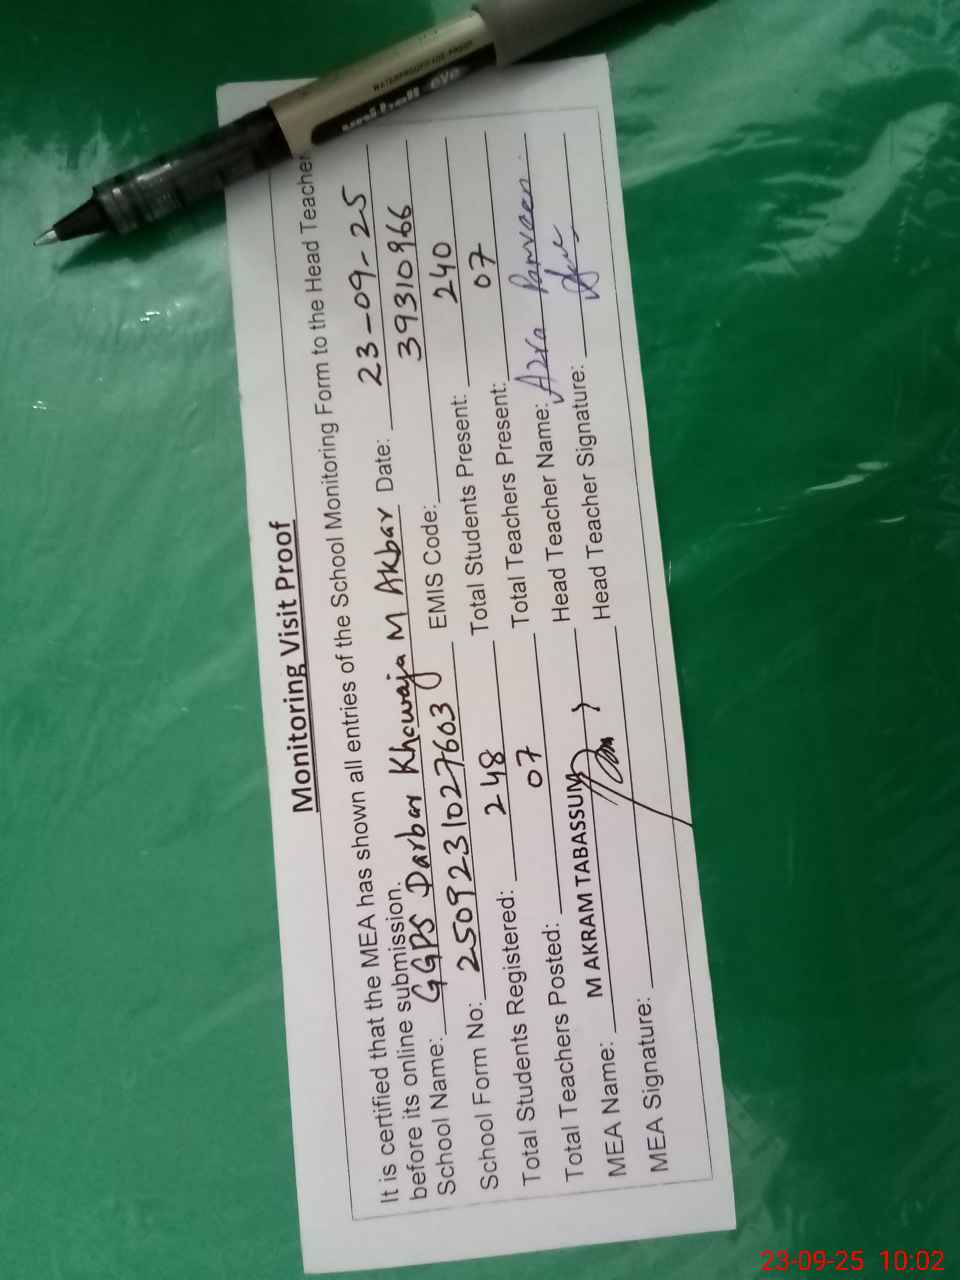 Monitoring Visit Proof
It is certified that the MEA has shown all entries of the School Monitoring Form to the Head Teacher
before its online submission.
School Name: GGPS Darbar Khawaja M Akbar Date: 23-09-25
School Form No: 2509231027603 EMIS Code: 39310966
Total Students Registered: 248 Total Students Present: 240
Total Teachers Posted: 07 Total Teachers Present: 07
MEA Name: M AKRAM TABASSUM Head Teacher Name: Azra Parveen
MEA Signature: Head Teacher Signature:
uni-ball eye
WATERPROOF/FADE-PROOF
23-09-25 10:02